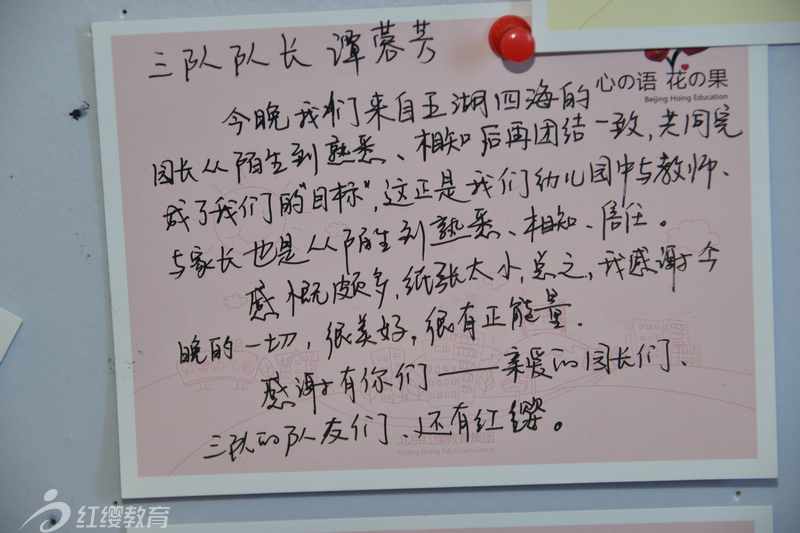 三队队长 谭蓉芳
心の语 花の果
Beijing Hoing Education
今晚我们来自五湖四海的
园长从陌生到熟悉、相知后再团结一致,共同完
成了我们的"目标",这正是我们幼儿园中与教师、
与家长也是从陌生到熟悉、相知、信任。
感慨颇多,纸张太小,总之,我感谢今
晚的一切,很美好,很有正能量.
感谢有你们——亲爱的园长们、
三队的队友们、还有红缨。
北京红缨教育集团
Beijing Hoing Education Group
红缨教育